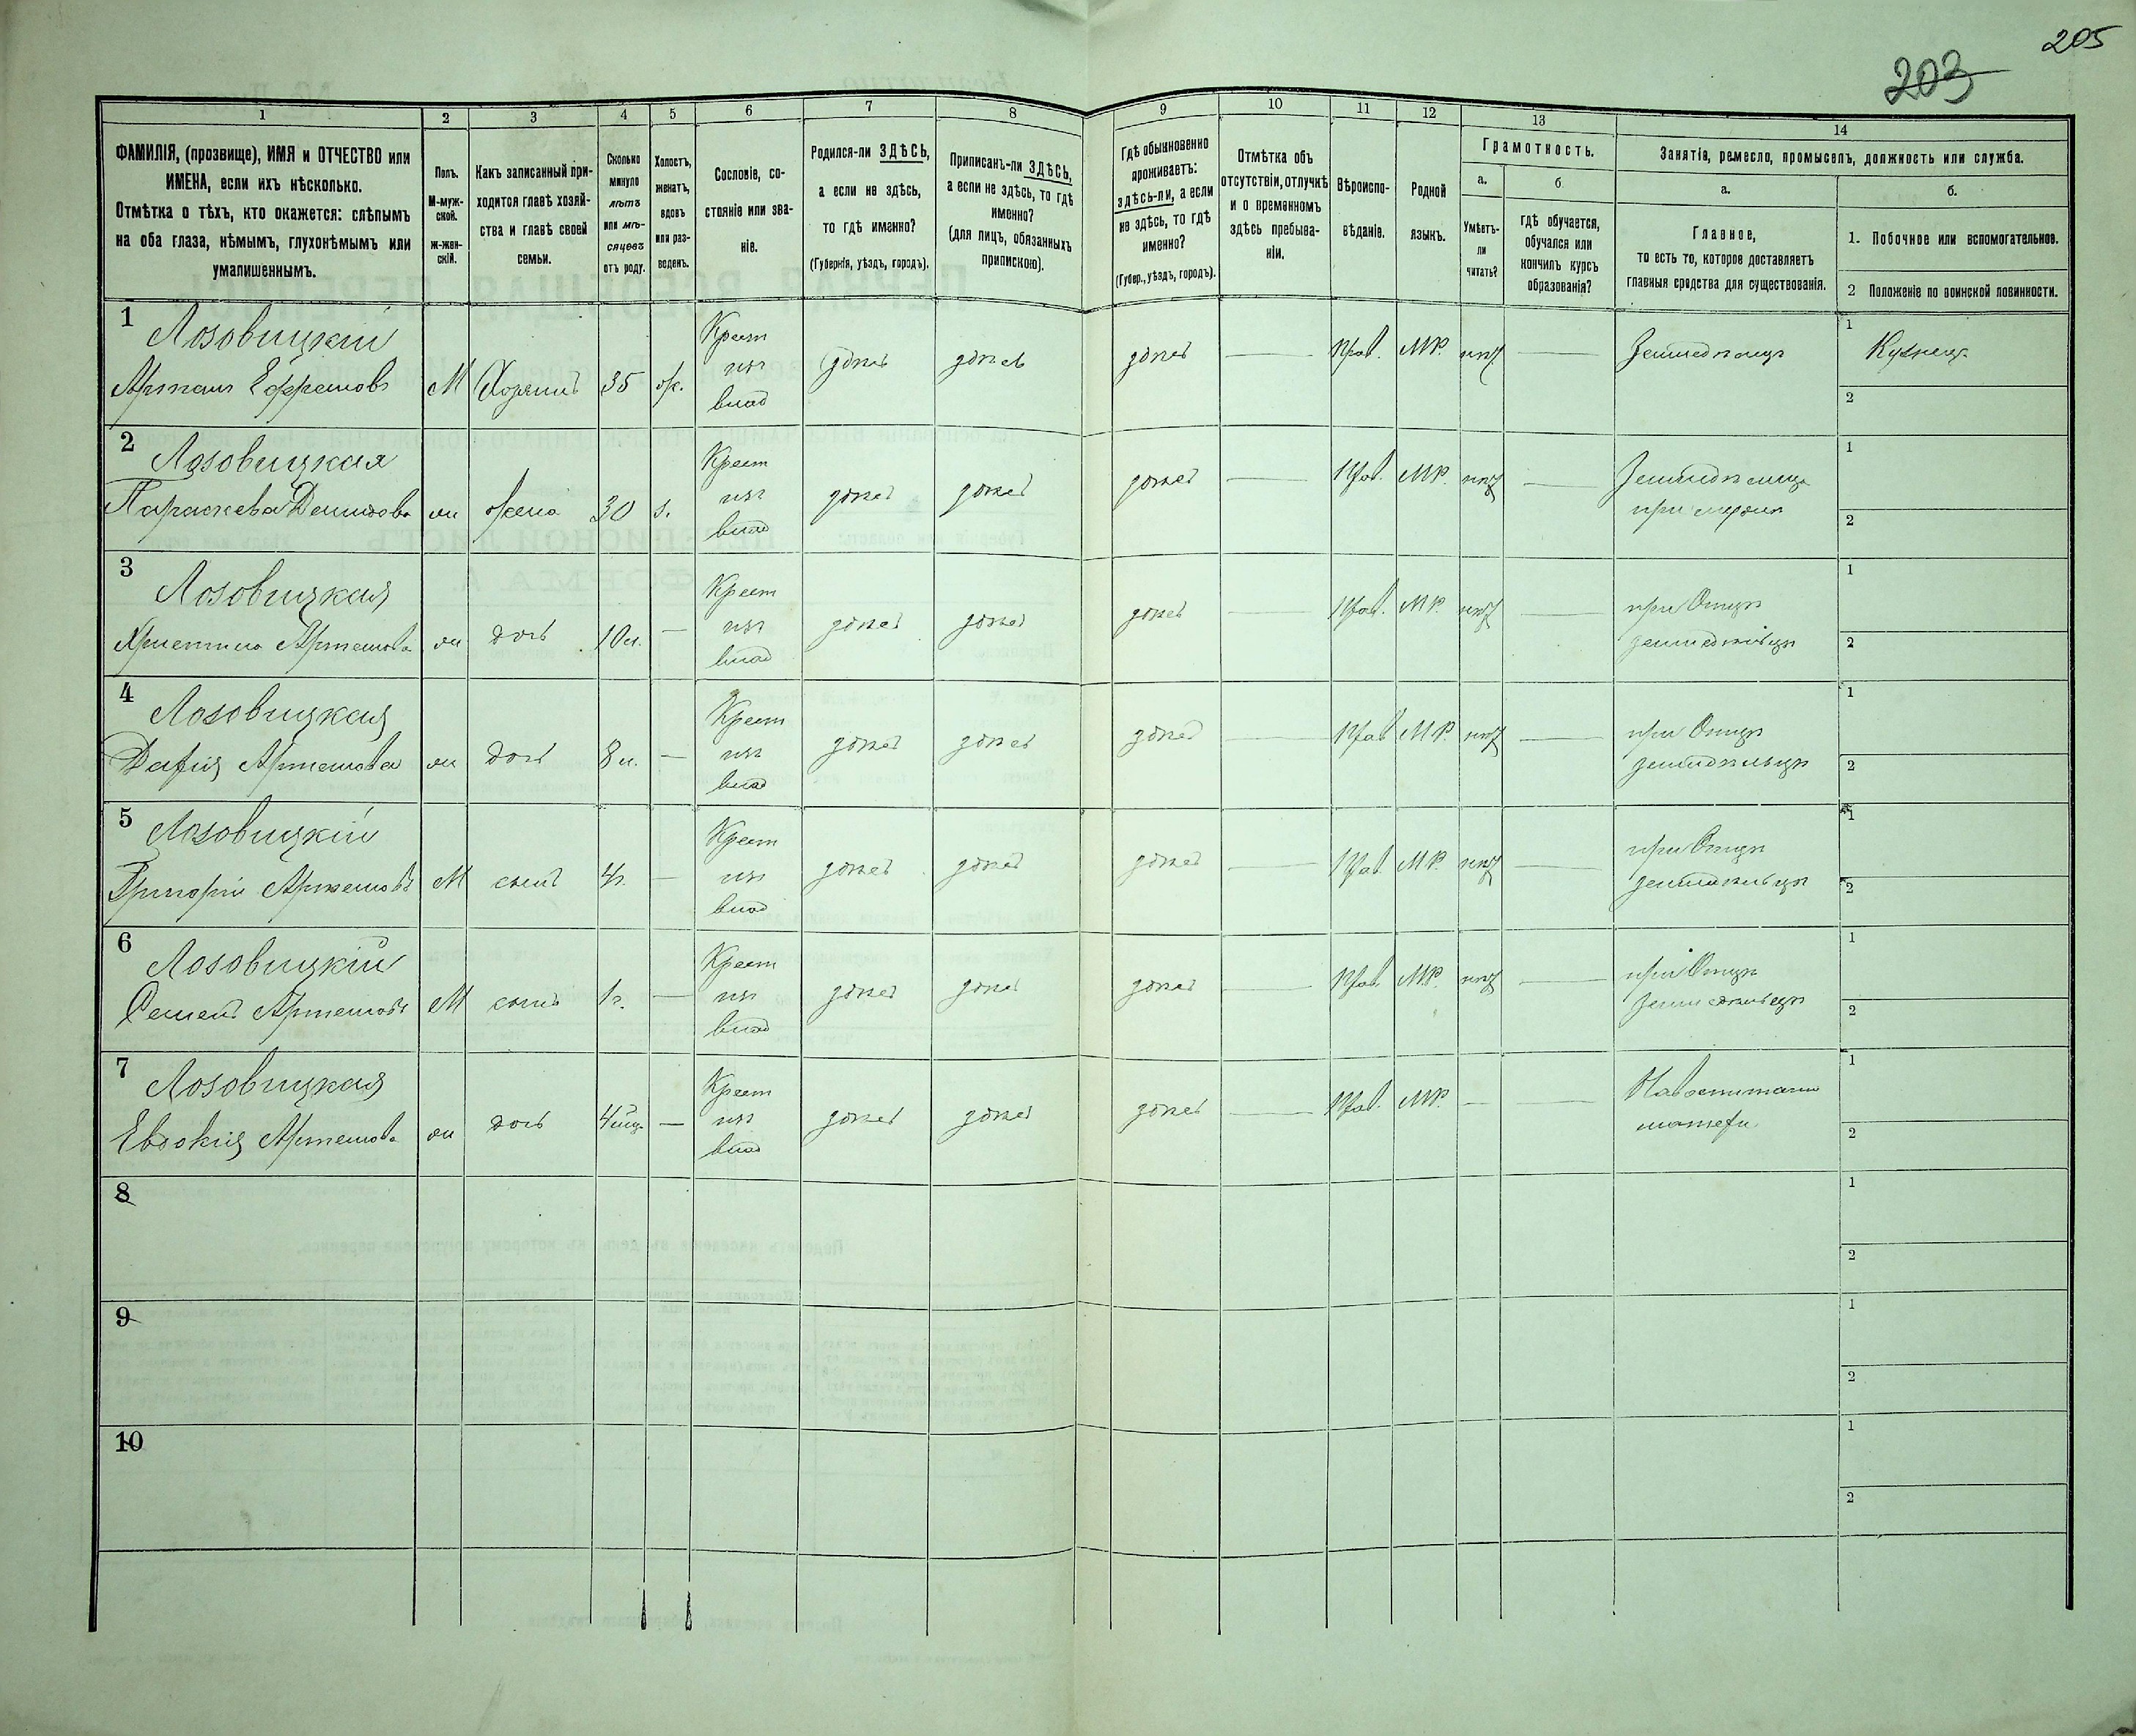 205
203
1
2
3
4
5
6
7
8
9
10
11
12
13
14
ФАМИЛІЯ, (прозвище), ИМЯ и ОТЧЕСТВО или
ИМЕНА, если ихъ нѣсколько.
Отмѣтка о тѣхъ, кто окажется: слѣпымъ
на оба глаза, нѣмымъ, глухонѣмымъ или
умалишеннымъ.
Полъ.
М-муж-
ской.
ж-жен-
скій.
Какъ записанный при-
ходится главѣ хозяй-
ства и главѣ своей
семьи.
Сколько
минуло
лѣтъ
или мѣ-
сяцевъ
отъ роду.
Холостъ,
женатъ,
вдовъ
или раз-
веденъ.
Сословіе, со-
стояніе или зва-
ніе.
Родился-ли ЗДѢСЬ,
а если не здѣсь,
то гдѣ именно?
(Губернія, уѣздъ, городъ).
Приписанъ-ли ЗДѢСЬ,
а если не здѣсь, то гдѣ
именно?
(для лицъ, обязанныхъ
припискою).
Гдѣ обыкновенно
проживаетъ:
здѣсь-ли, а если
не здѣсь, то гдѣ
именно?
(Губер., уѣздъ, городъ).
Отмѣтка объ
отсутствіи, отлучкѣ
и о временномъ
здѣсь пребыва-
ніи.
Вѣроиспо-
вѣданіе.
Родной
языкъ.
Грамотность.
а.
Умѣетъ-
ли
читать?
б
гдѣ обучается,
обучался или
кончилъ курсъ
образованія?
Занятія, ремесло, промыселъ, должность или служба.
а.
Главное,
то есть то, которое доставляетъ
главныя средства для существованія.
б.
1. Побочное или вспомогательное.
2 Положеніе по воинской повинности.
1
Лозовицкій
Артемъ Ефремовъ
М
Хозяинъ
35
ж.
Крест
изъ
влад
здѣсь
здѣсь
здѣсь
—
Прав.
МР.
нѣт
—
Земледѣлецъ
1
Кузнецъ
2
2
Лозовицкая
Параскева Демидова
ж
жена
30
з.
Крест
изъ
влад
здѣсь
здѣсь
здѣсь
—
Прав.
МР.
нѣт
—
Земледѣлецъ
при мужѣ
1
2
3
Лозовицкая
Христина Артемова
ж
дочь
10л.
—
Крест
изъ
влад
здѣсь
здѣсь
здѣсь
—
Прав.
МР.
нѣт
—
при Отцѣ
земледѣльцѣ
1
2
4
Лозовицкая
Дарія Артемова
ж
дочь
8л.
—
Крест
изъ
влад
здѣсь
здѣсь
здѣсь
—
Прав
МР.
нѣт
—
при Отцѣ
земледѣльцѣ
1
2
5
Лозовицкій
Григорій Артемовъ
М
сынъ
4г.
—
Крест
изъ
влад
здѣсь
здѣсь
здѣсь
—
Прав.
МР.
нѣт
—
при Отцѣ
земледѣльцѣ
1
2
6
Лозовицкій
Семенъ Артемовъ
М
сынъ
1г.
—
Крест
изъ
влад
здѣсь
здѣсь
здѣсь
—
Прав.
МР.
нѣт
—
при Отцѣ
земледѣльцѣ
1
2
7
Лозовицкая
Евдокія Артемова
ж
дочь
4мц
—
Крест
изъ
влад
здѣсь
здѣсь
здѣсь
—
Прав.
МР.
—
—
матери
1
2
8
1
2
9
1
2
10
1
2